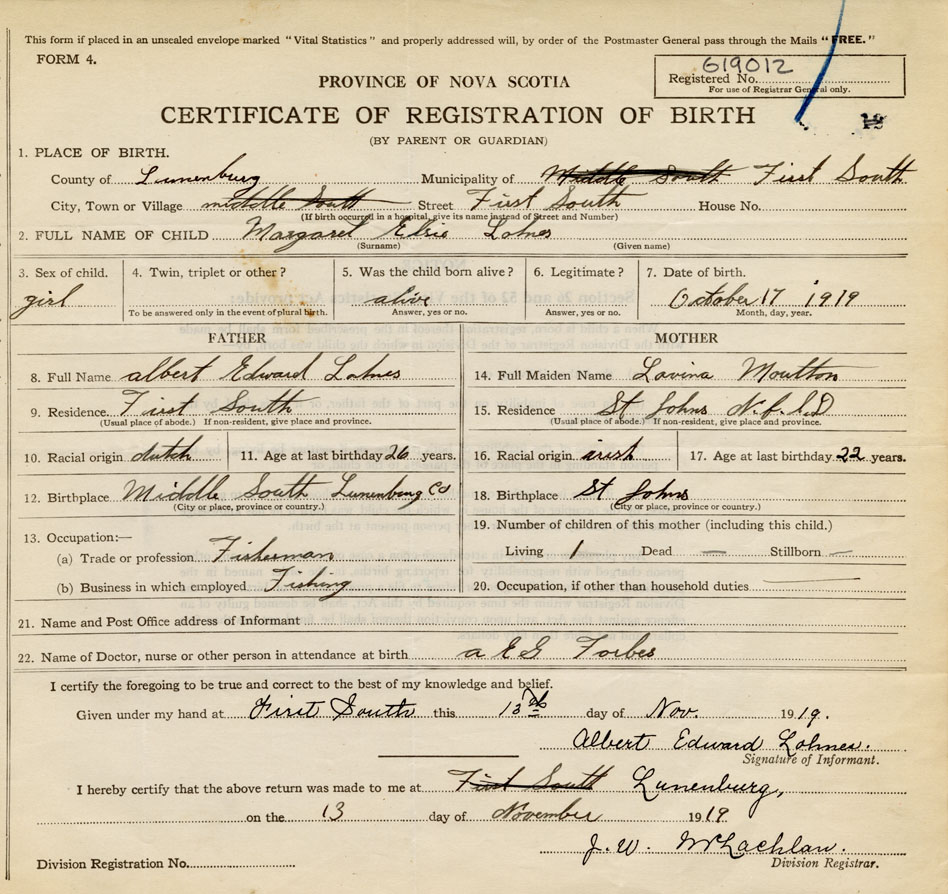 This form if placed in an unsealed envelope marked "Vital Statistics" and properly addressed will, by order of the Postmaster General pass through the Mails "FREE."
FORM 4.
619012
Registered No.
For use of Registrar General only.
PROVINCE OF NOVA SCOTIA
CERTIFICATE OF REGISTRATION OF BIRTH
19
(BY PARENT OR GUARDIAN)
1. PLACE OF BIRTH.
County of Lunenburg Municipality of Middle South First South
City, Town or Village middle South Street First South House No.
(If birth occurred in a hospital, give its name instead of Street and Number)
2. FULL NAME OF CHILD Margaret Elsie Lohnes
(Surname) (Given name)
3. Sex of child. 4. Twin, triplet or other? 5. Was the child born alive? 6. Legitimate? 7. Date of birth.
girl alive October 17 1919
To be answered only in the event of plural birth. Answer, yes or no. Answer, yes or no. Month, day, year.
FATHER MOTHER
8. Full Name albert Edward Lohnes 14. Full Maiden Name Lavina Moulton
9. Residence. First South 15. Residence St Johns N.f.L.D
(Usual place of abode.) If non-resident, give place and province. (Usual place of abode.) If non-resident, give place and province.
10. Racial origin dutch 11. Age at last birthday 26 years. 16. Racial origin irish 17. Age at last birthday 22 years.
12. Birthplace Middle South Lunenburg Co 18. Birthplace St Johns
(City or place, province or country.) (City or place, province or country.)
13. Occupation:— 19. Number of children of this mother (including this child.)
(a) Trade or profession Fisherman Living 1 Dead — Stillborn —
(b) Business in which employed Fishing 20. Occupation, if other than household duties
21. Name and Post Office address of Informant
22. Name of Doctor, nurse or other person in attendance at birth a E G Forbes
I certify the foregoing to be true and correct to the best of my knowledge and belief.
Given under my hand at First South this 13th day of Nov. 1919.
Albert Edward Lohnes.
Signature of Informant.
I hereby certify that the above return was made to me at First South Lunenburg,
on the 13 day of November 1919
J. W. McLachlan.
Division Registration No. Division Registrar.